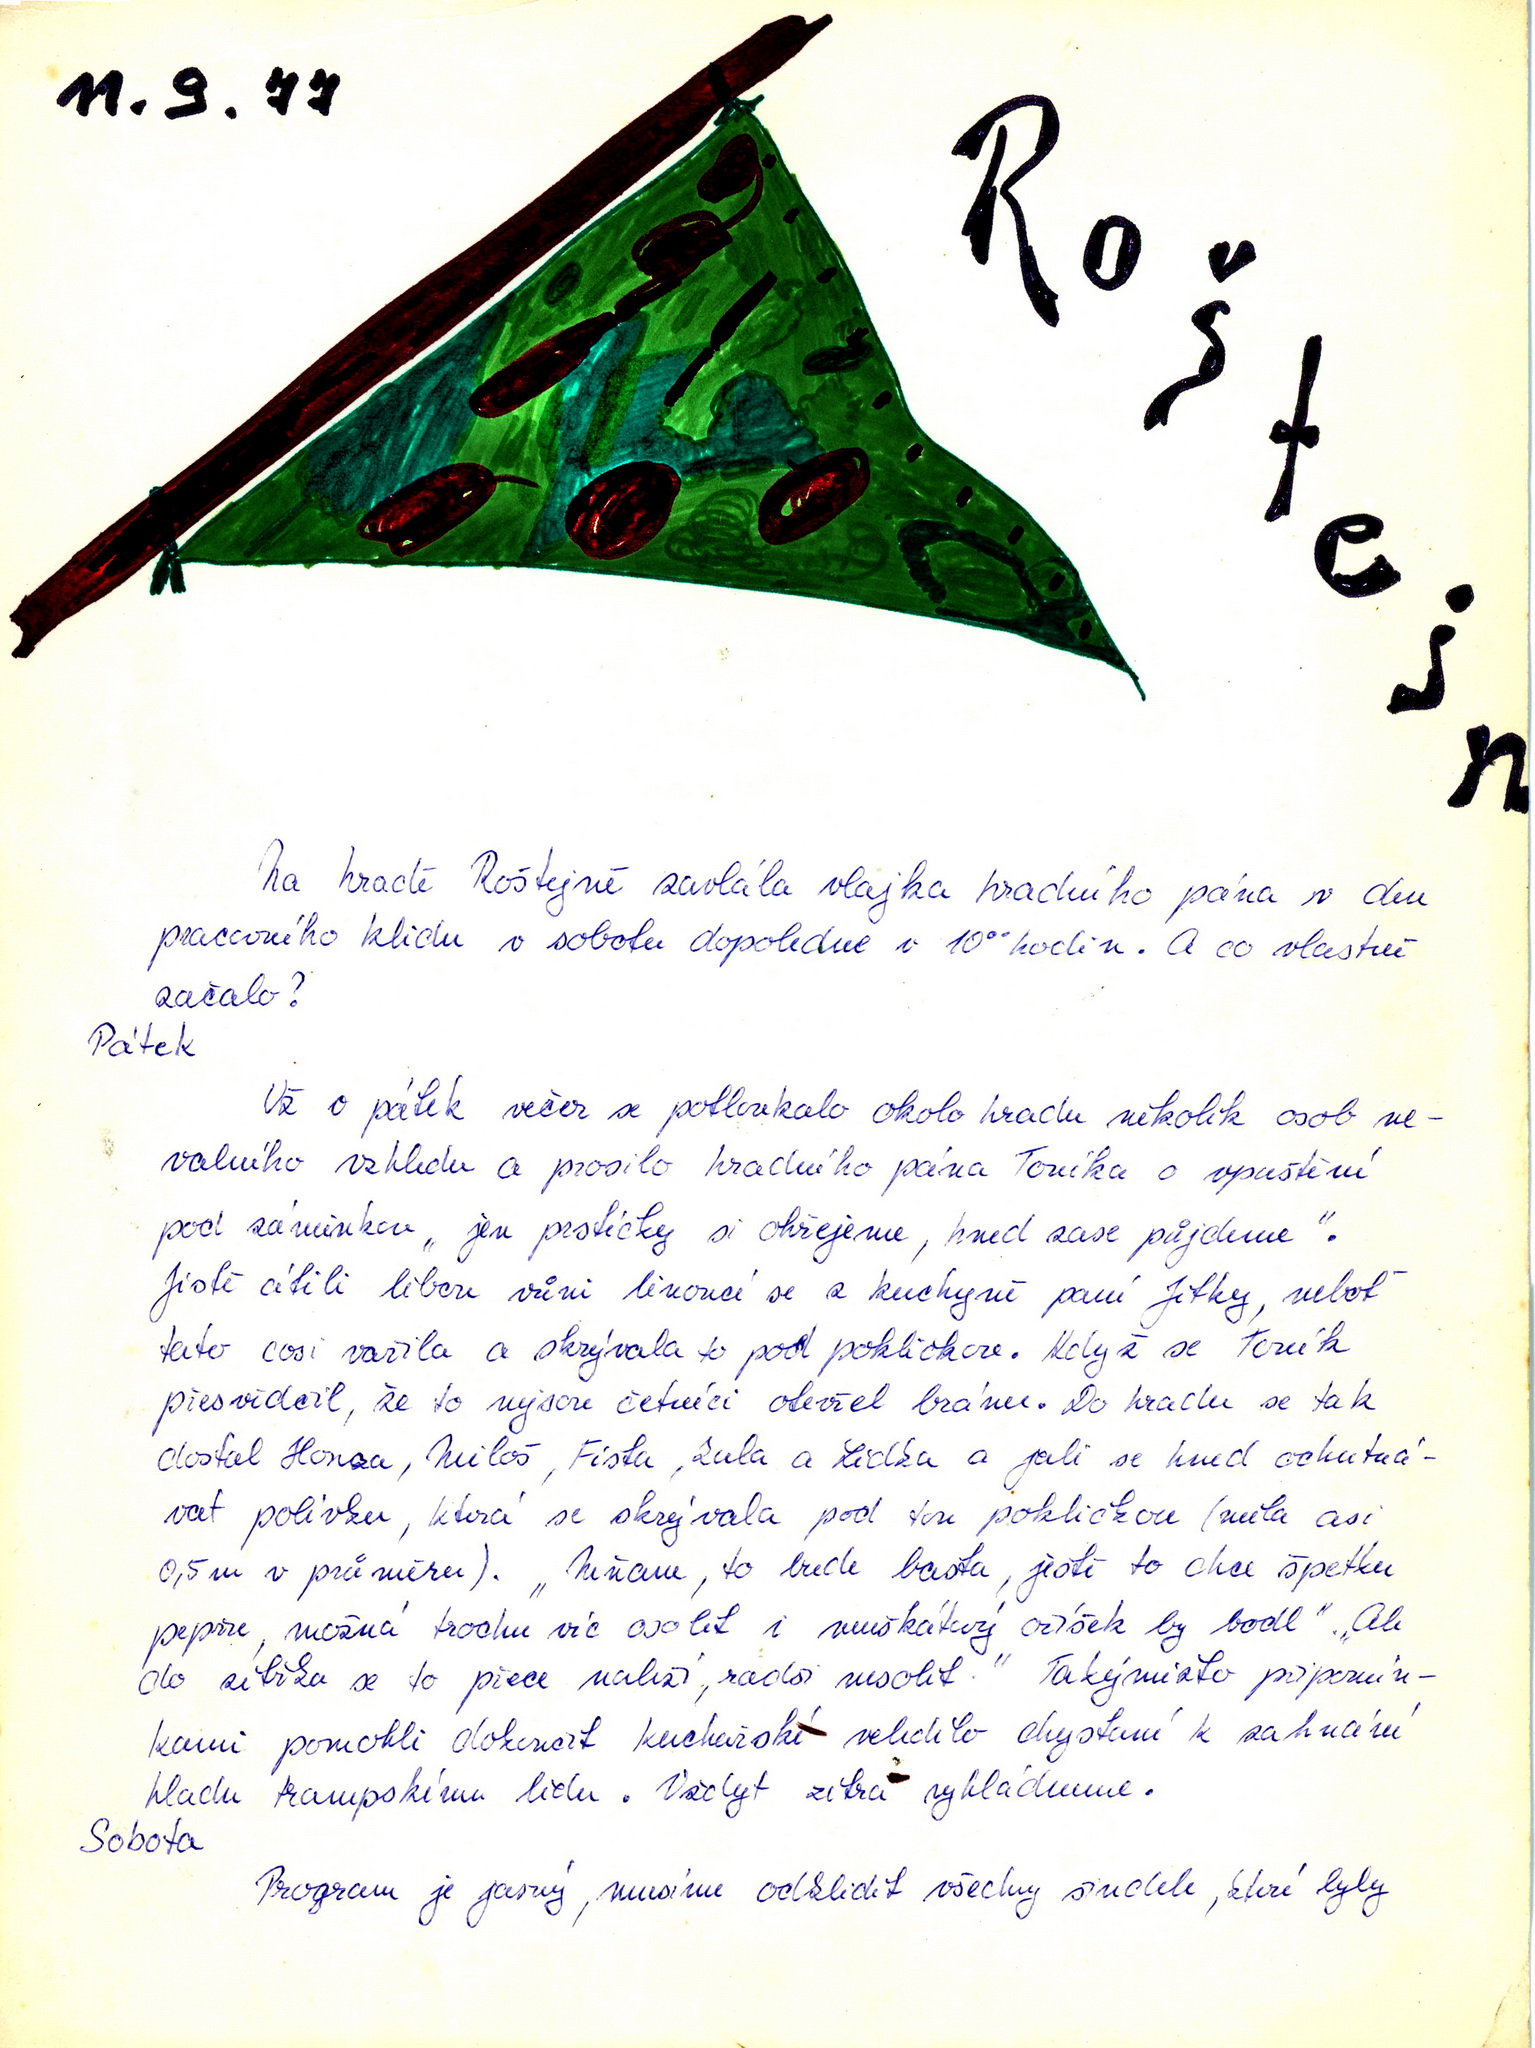 11. 9. 77
Roštejn
Na hradě Roštejně zavlála vlajka hradního pána v den
pracovního klidu v sobotu dopoledne v 10°° hodin. A co vlastně
začalo?
Pátek
Už v pátek večer se potloukalo okolo hradu několik osob ne-
valného vzhledu a prosilo hradního pána Toníka o vpuštění
pod záminkou „jen prstíčky si ohřejeme, hned zase půjdeme“.
Jistě cítili libou vůni linoucí se z kuchyně paní Jitky, neboť
tato cosi vařila a skrývala to pod pokličkou. Když se Toník
přesvědčil, že to nejsou četníci otevřel bránu. Do hradu se tak
dostal Honza, Miloš, Fišta, Zula a Lidka a jali se hned ochutná-
vat polívku, která se skrývala pod tou pokličkou (měla asi
0,5 m v průměru). „Mňam, to bude bašta, ještě to chce špetku
pepře, možná trochu víc osolit i muškátový oříšek by bodl“. „Ale
do zítřka se to přece naleží, radši nesolit.“ Takýmito připomín-
kami pomohli dokončit kuchařské veledílo chystané k zahnání
hladu trampskému lidu. Vždyt zítra vyhládneme.
Sobota
Program je jasný, musíme odklidit všechny šindele, které byly